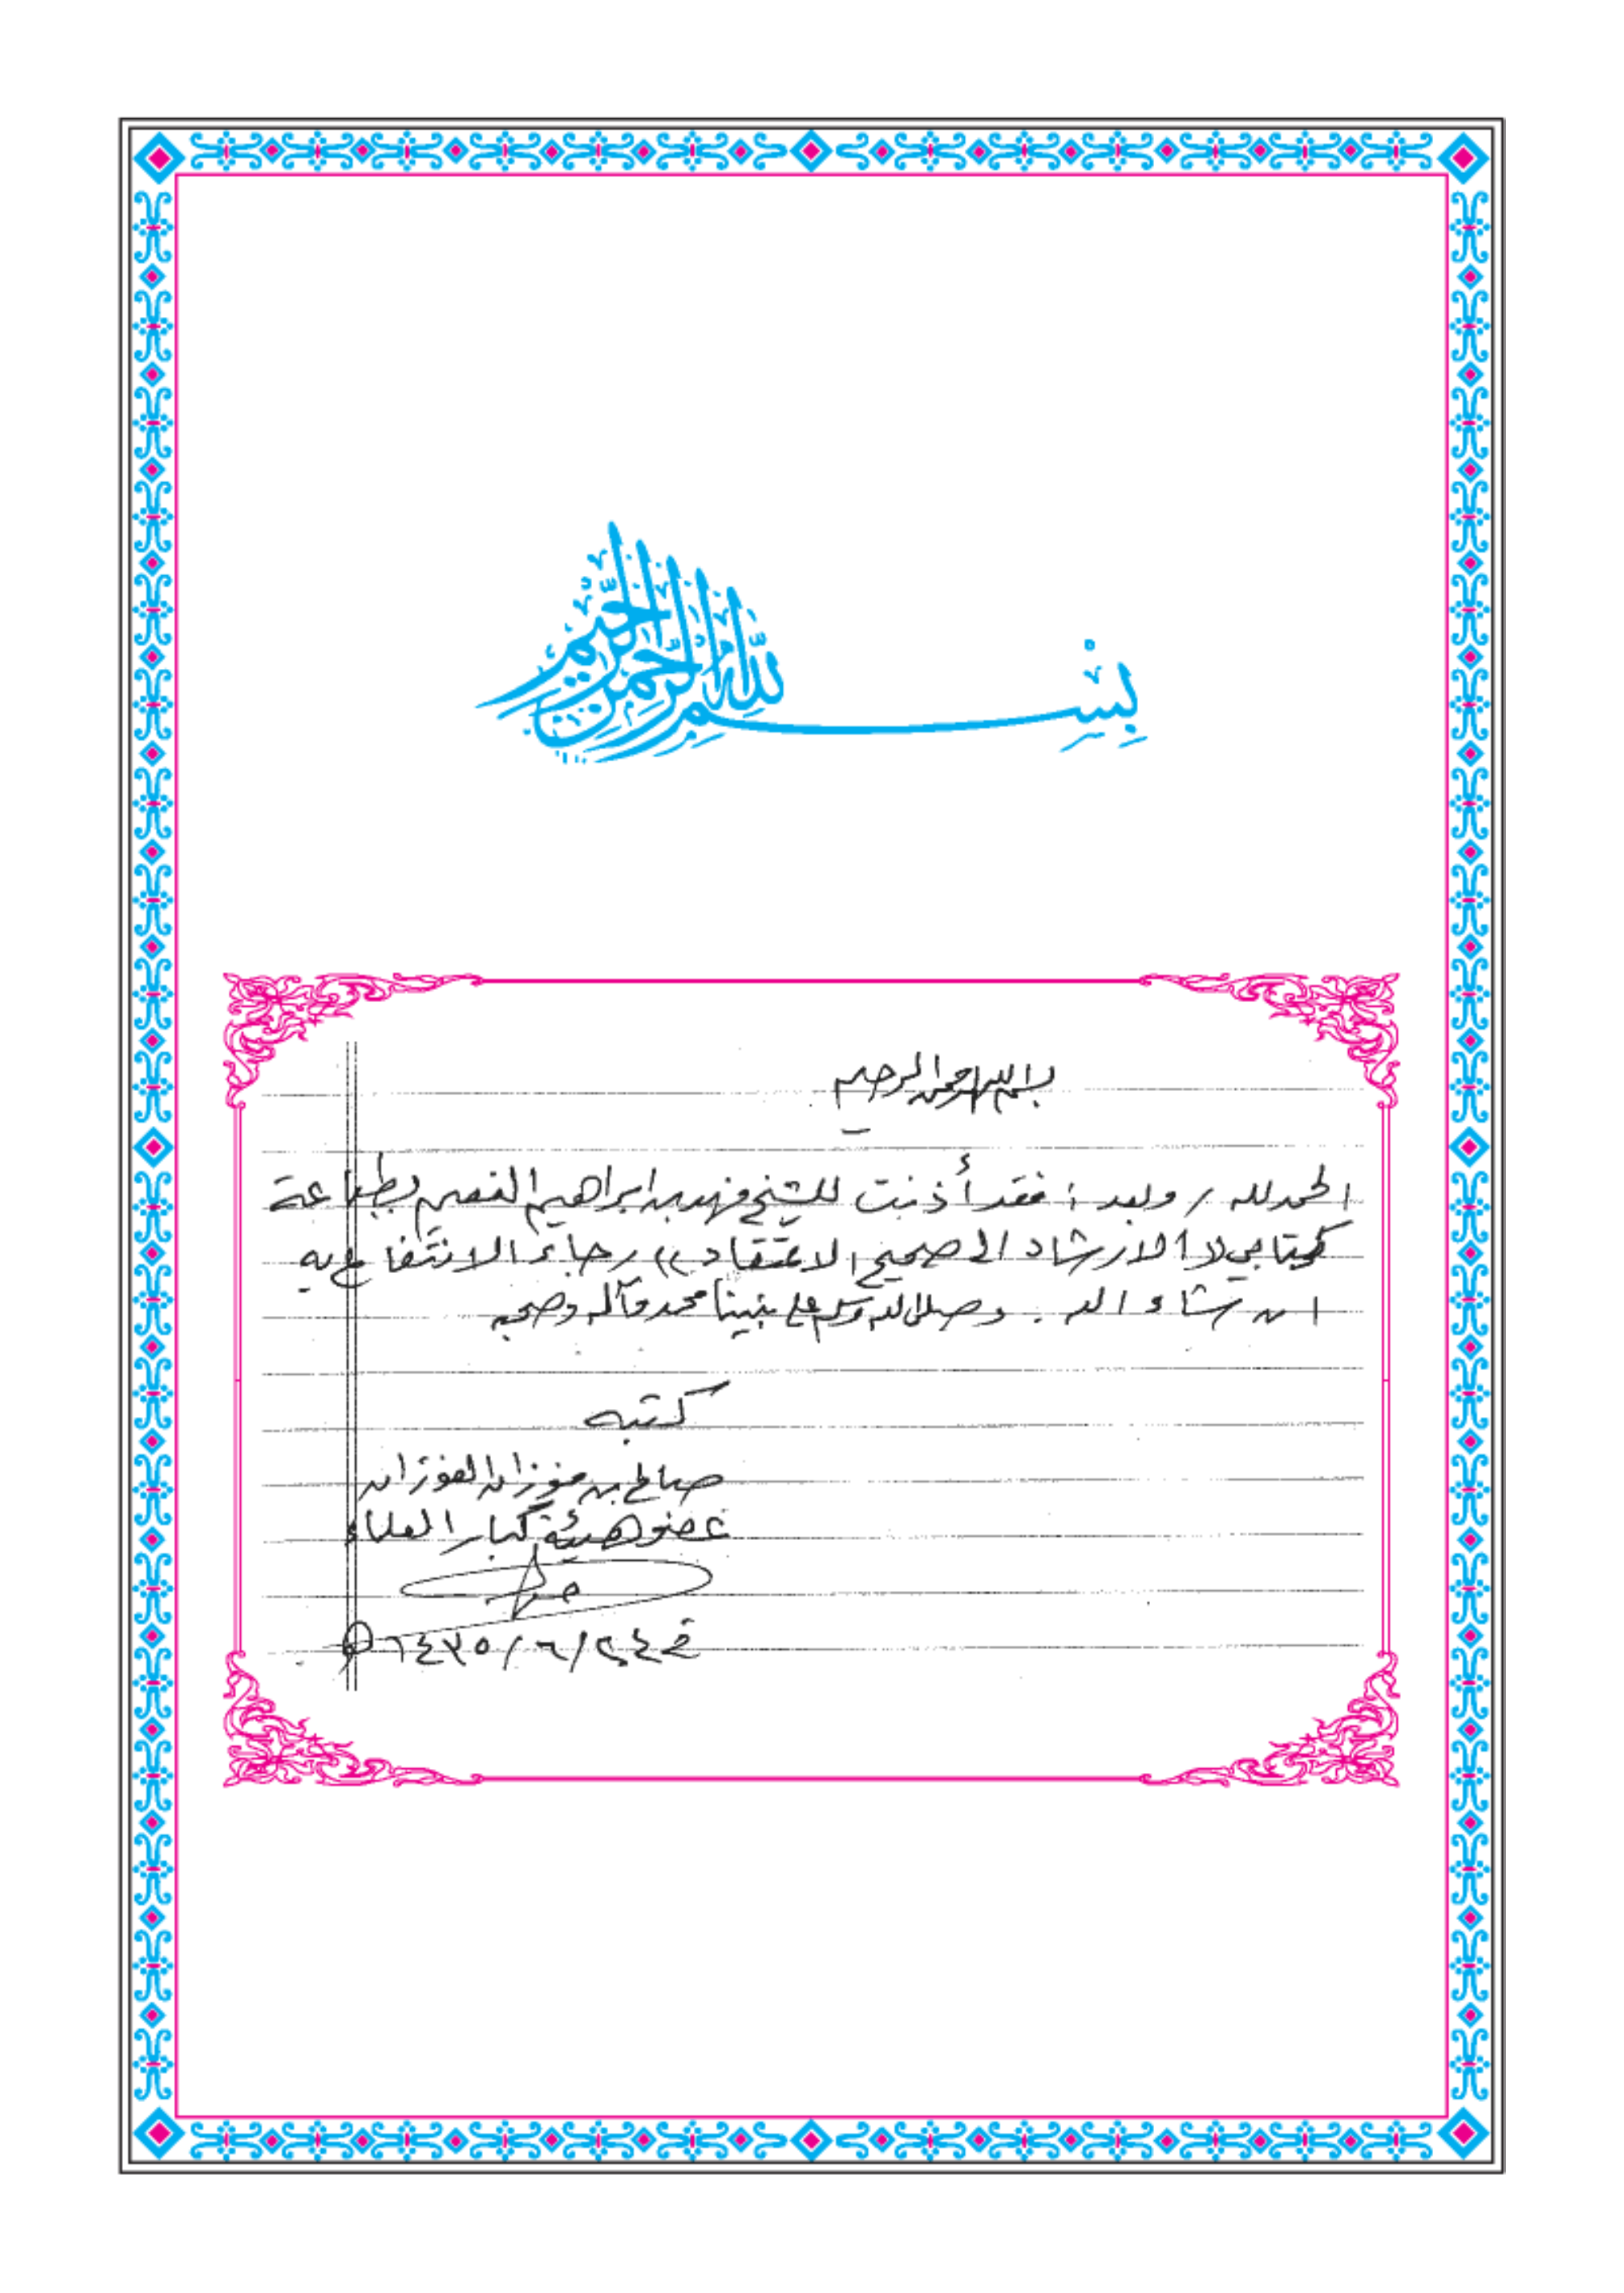 بِسْمِ اللَّهِ الرَّحْمَٰنِ الرَّحِيمِ
بسم الله الرحمن الرحيم
الحمد لله / وبعد : فقد أذنت للشيخ فهد بن ابراهيم بطباعة
كتابي (( الارشاد الى صحيح الاعتقاد )) رجاء الانتفاع به
ان شاء الله . وصلى الله وسلم على نبينا محمد وآله وصحبه
كتبه
صالح بن فوزان الفوزان
عضو هيئة كبار العلماء
في ٢٤/٦/ هـ